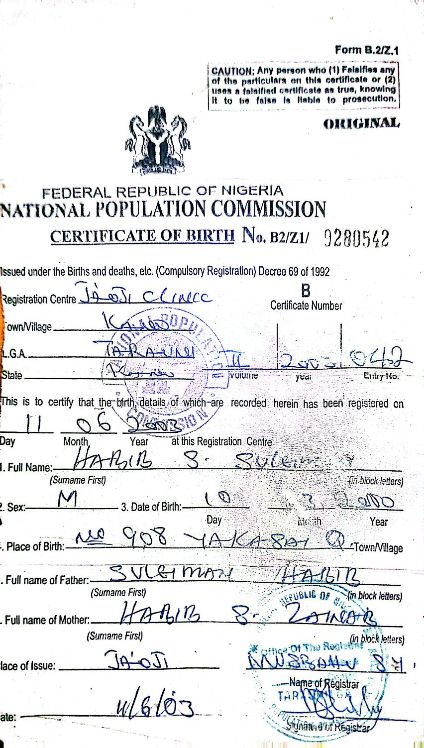 Form B.2/Z.1
CAUTION: Any person who (1) Falsifies any
of the particulars on this certificate or (2)
uses a falsified certificate as true, knowing
it to be false is liable to prosecution.
ORIGINAL
FEDERAL REPUBLIC OF NIGERIA
NATIONAL POPULATION COMMISSION
CERTIFICATE OF BIRTH No. B2/Z1/ 9280542
Issued under the Births and deaths, etc. (Compulsory Registration) Decree 69 of 1992
Registration Centre JA'OJI CLINIC
B
Certificate Number
Town/Village KANO
L.G.A. TARAUNI II 2003 042
State KANO volume year Entry No.
This is to certify that the birth, details of which are recorded herein has been registered on
11 06 2003
Day Month Year at this Registration Centre
1. Full Name: HABIB S. SULEIMAN
(Surname First) (in block letters)
2. Sex: M 3. Date of Birth: 10 3 2000
Day Month Year
Place of Birth: No 908 YAKASAI Q Town/Village
. Full name of Father: SULEIMAN HABIB
(Surname First) (in block letters)
. Full name of Mother: HABIB S. ZAINAB
(Surname First) (in block letters)
lace of Issue: JA'OJI
Office Of The Registrar
Name of Registrar
ate: 11/6/03
Signature of Registrar